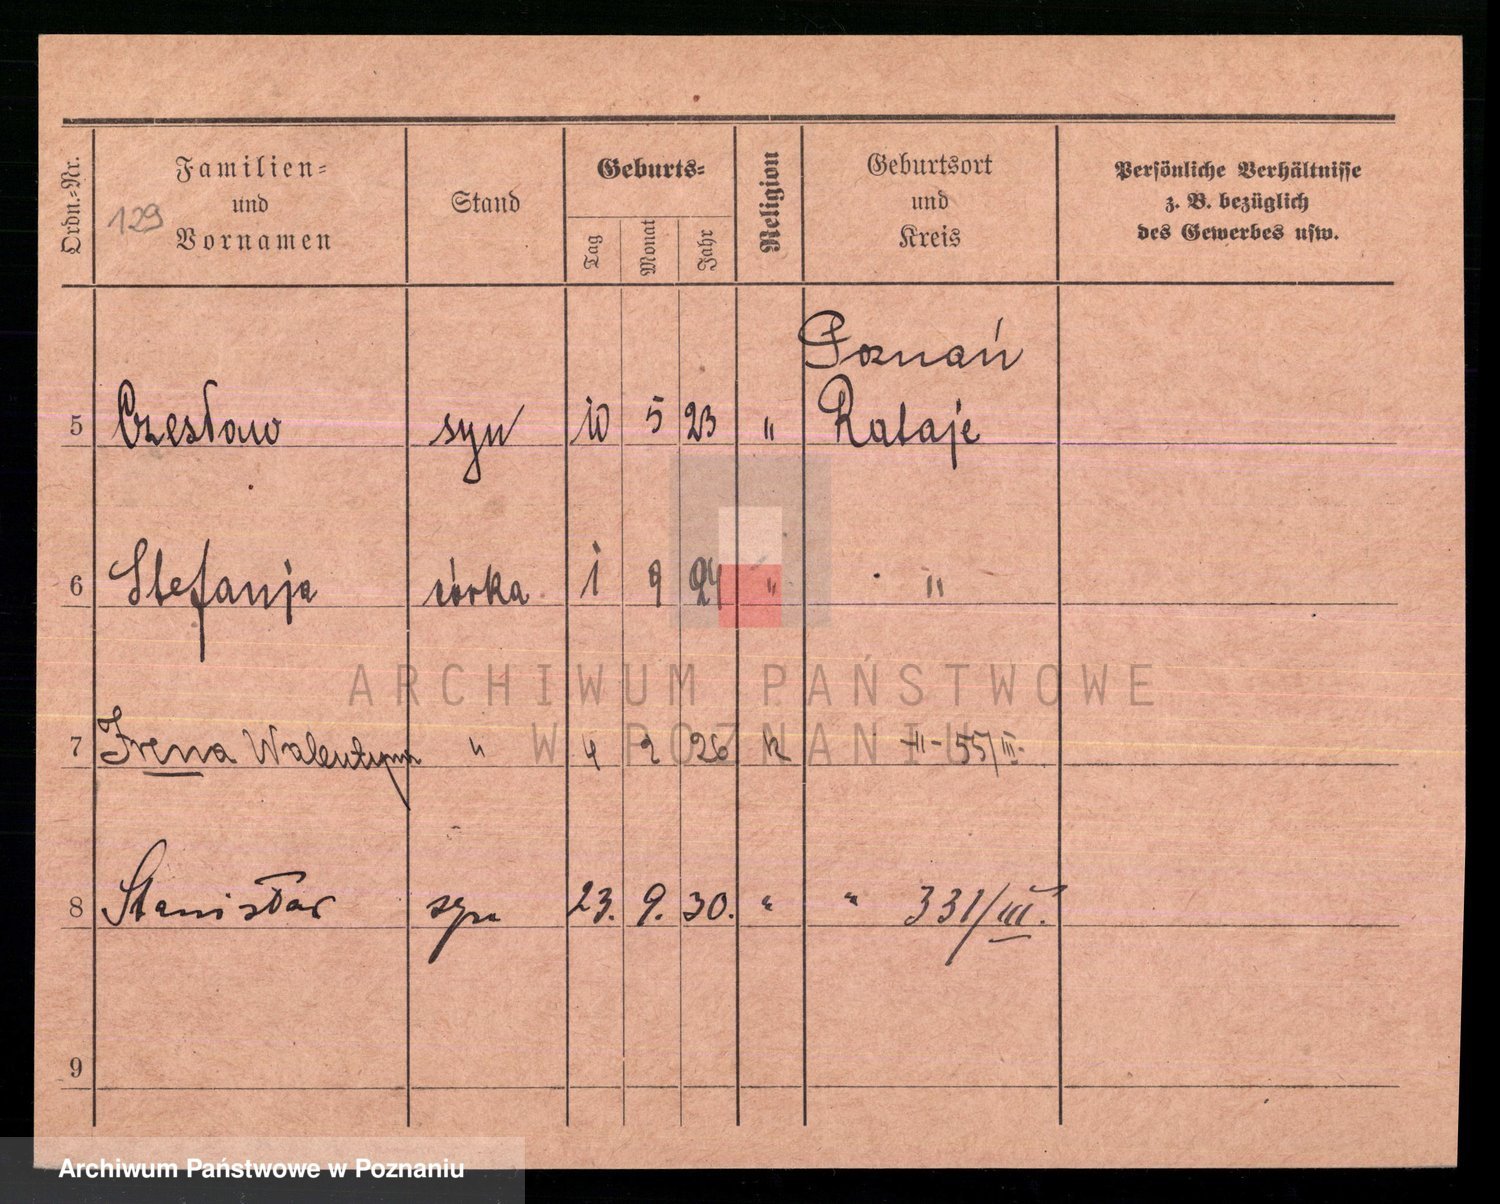 Ordn.-Nr.
Familien-
und
Vornamen
129
Stand
Geburts-
Tag
Monat
Jahr
Religion
Geburtsort
und
Kreis
Persönliche Verhältnisse
z. B. bezüglich
des Gewerbes usw.
Poznań
5 Czesław syn 10 5 23 " Rataje
6 Stefanja córka 1 9 24 " "
ARCHIWUM PAŃSTWOWE
W POZNANIU
7 Irena Walentyna " 4 2 26 k 55/III.
8 Stanisław syn 23. 9. 30. " " 331/III.
9
Archiwum Państwowe w Poznaniu